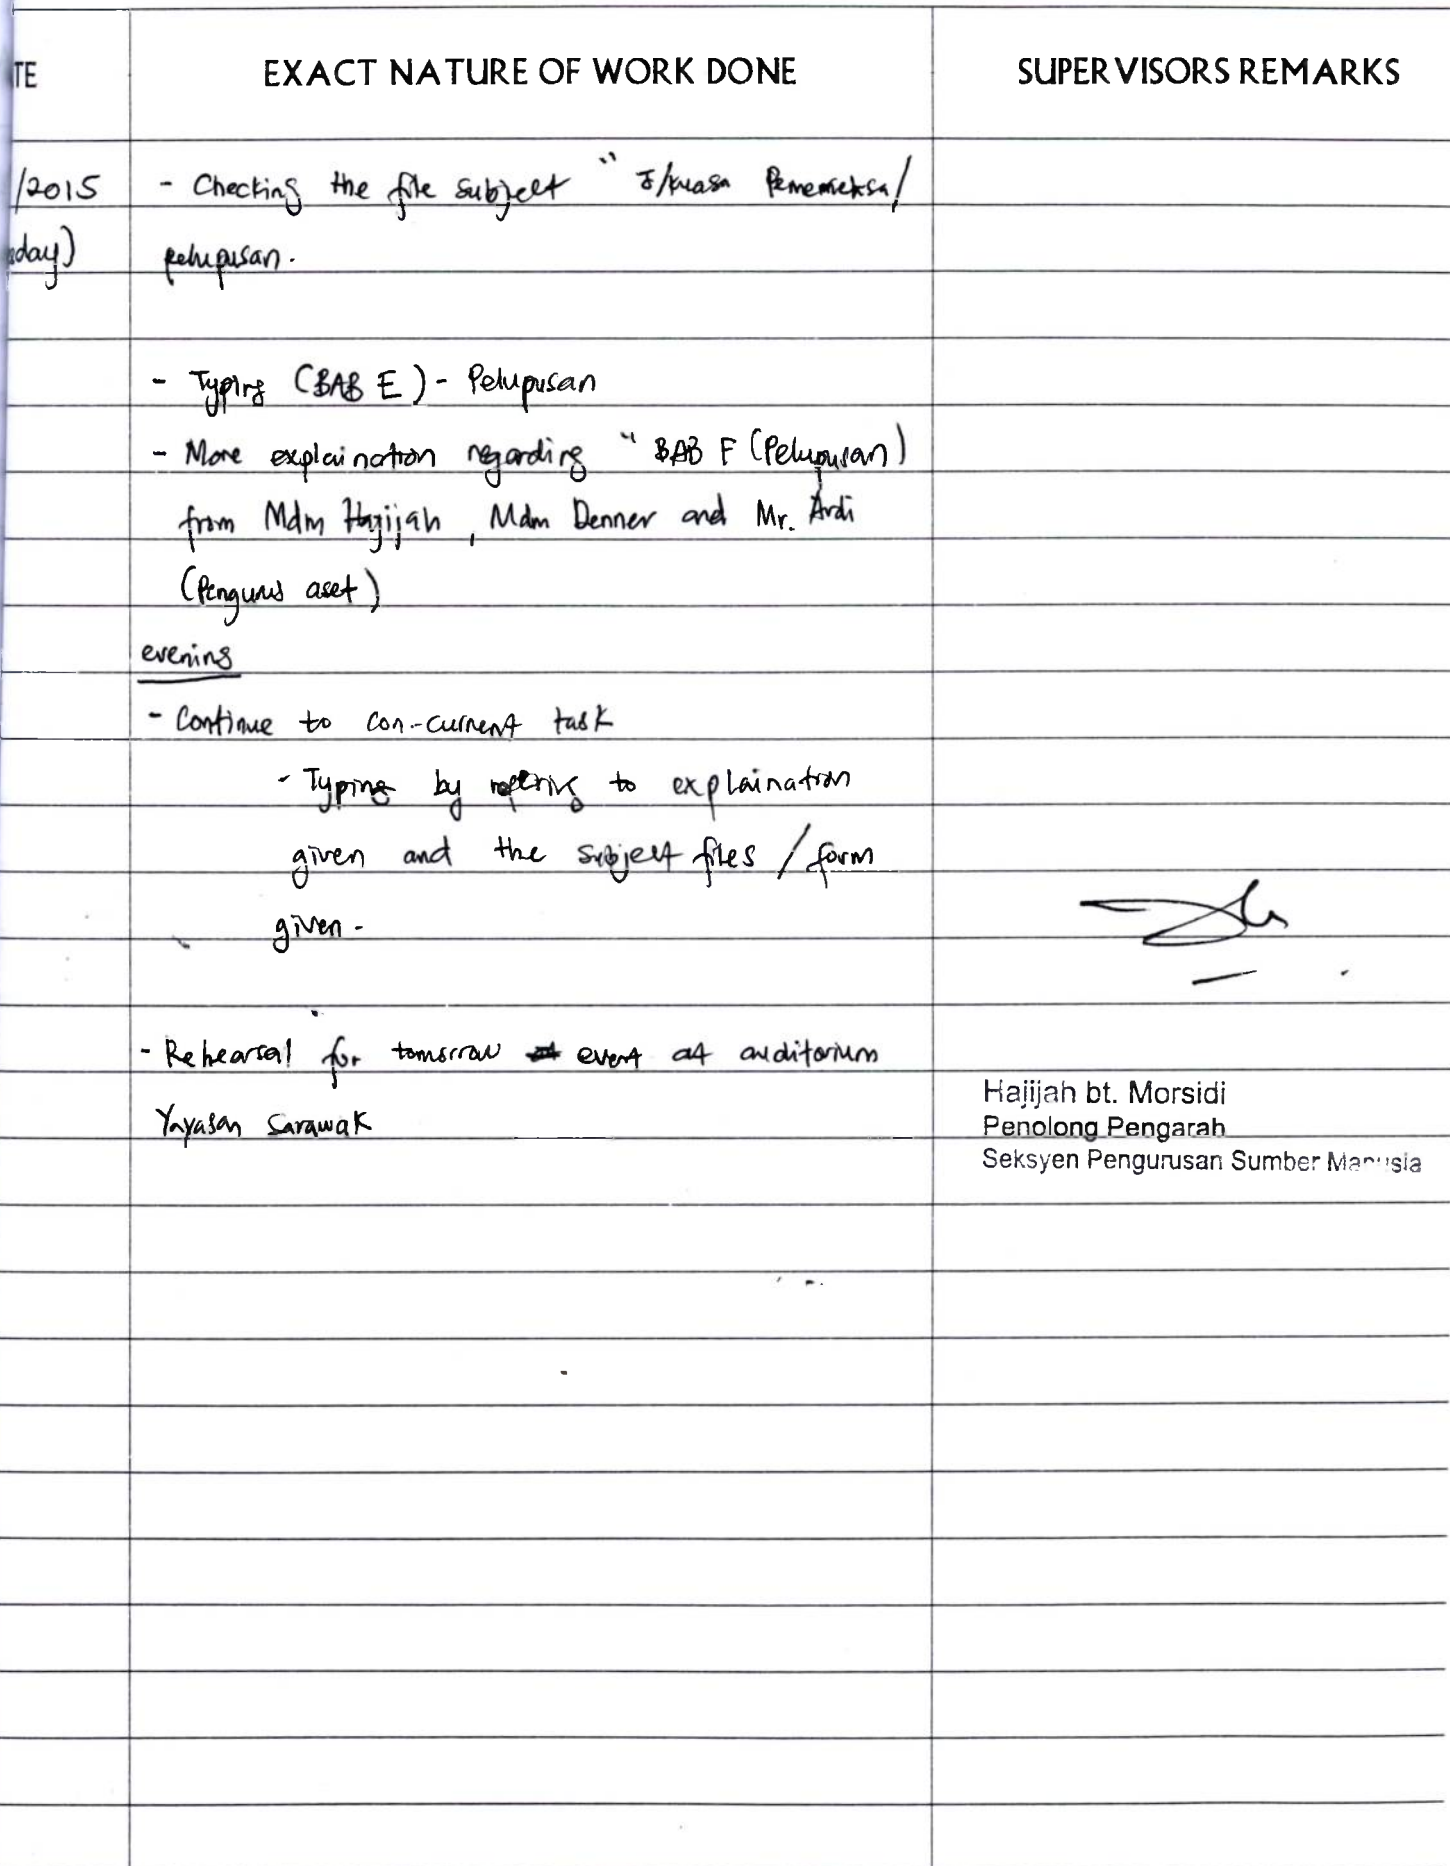 TE EXACT NATURE OF WORK DONE SUPERVISORS REMARKS
/2015 - Checking the file subject " J/kuasa Pememeriksa/
day) pelupusan.
- Typing (BAB E) - Pelupusan
- More explaination regarding " BAB F (Pelupusan)
from Mdm Hajijah , Mdm Denner and Mr. Ardi
(Pengurus aset)
evening
- Continue to con-current task
- Typing by refering to explaination
given and the subject files / form
given.
- Rehearsal for tomorrow event at auditorium
Yayasan Sarawak
Hajijah bt. Morsidi
Penolong Pengarah
Seksyen Pengurusan Sumber Manusia